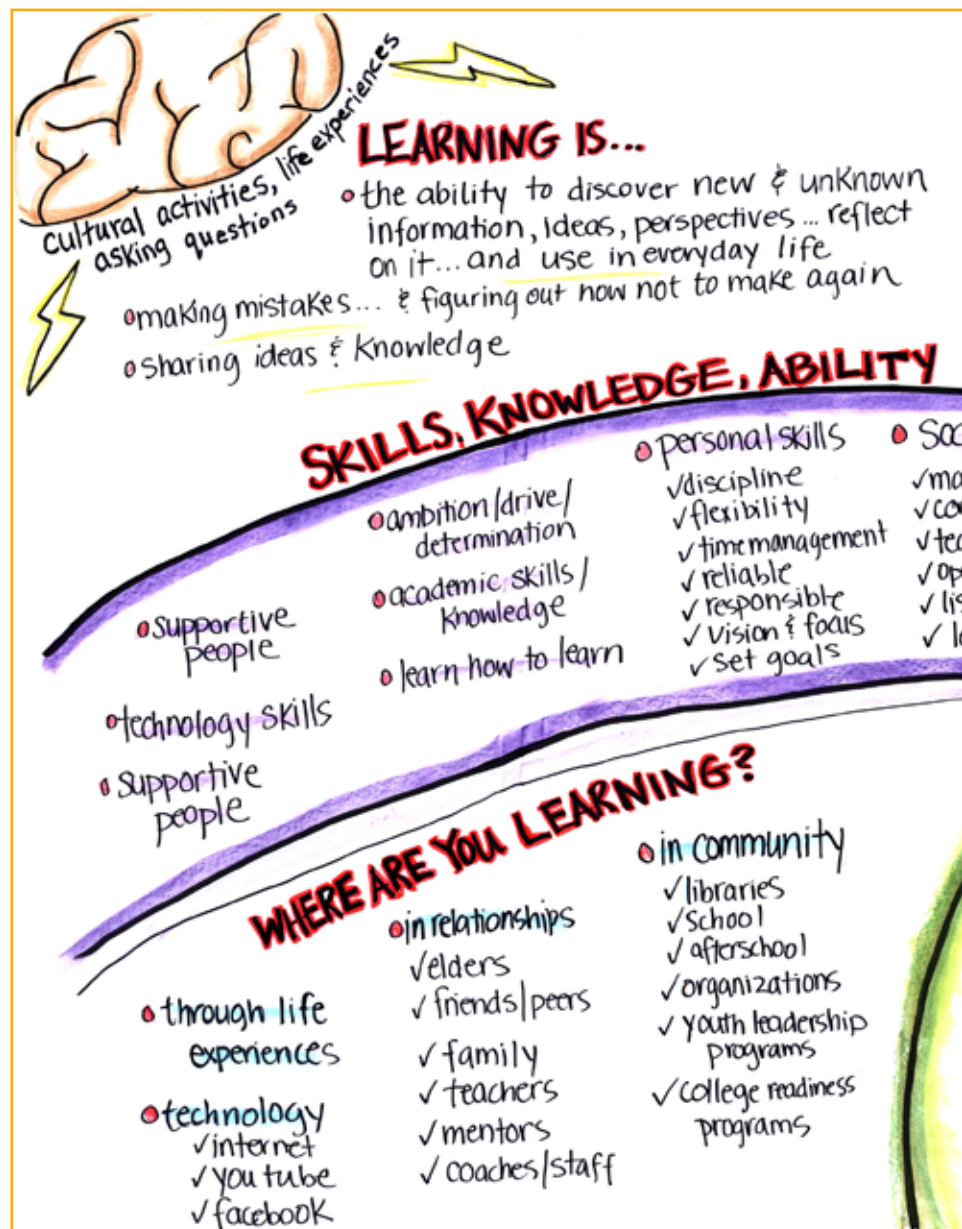 cultural activities, life experiences
asking questions
LEARNING IS...
the ability to discover new & unknown
information, ideas, perspectives... reflect
on it... and use in everyday life
making mistakes... & figuring out how not to make again
sharing ideas & knowledge
SKILLS, KNOWLEDGE, ABILITY
supportive
people
technology skills
supportive
people
ambition/drive/
determination
academic skills/
knowledge
learn how to learn
personal skills
✓discipline
✓flexibility
✓time management
✓reliable
✓responsible
✓vision & focus
✓set goals
WHERE ARE YOU LEARNING?
through life
experiences
technology
✓internet
✓you tube
✓facebook
in relationships
✓elders
✓friends/peers
✓family
✓teachers
✓mentors
✓coaches/staff
in community
✓libraries
✓school
✓afterschool
✓organizations
✓youth leadership
programs
✓college readiness
programs